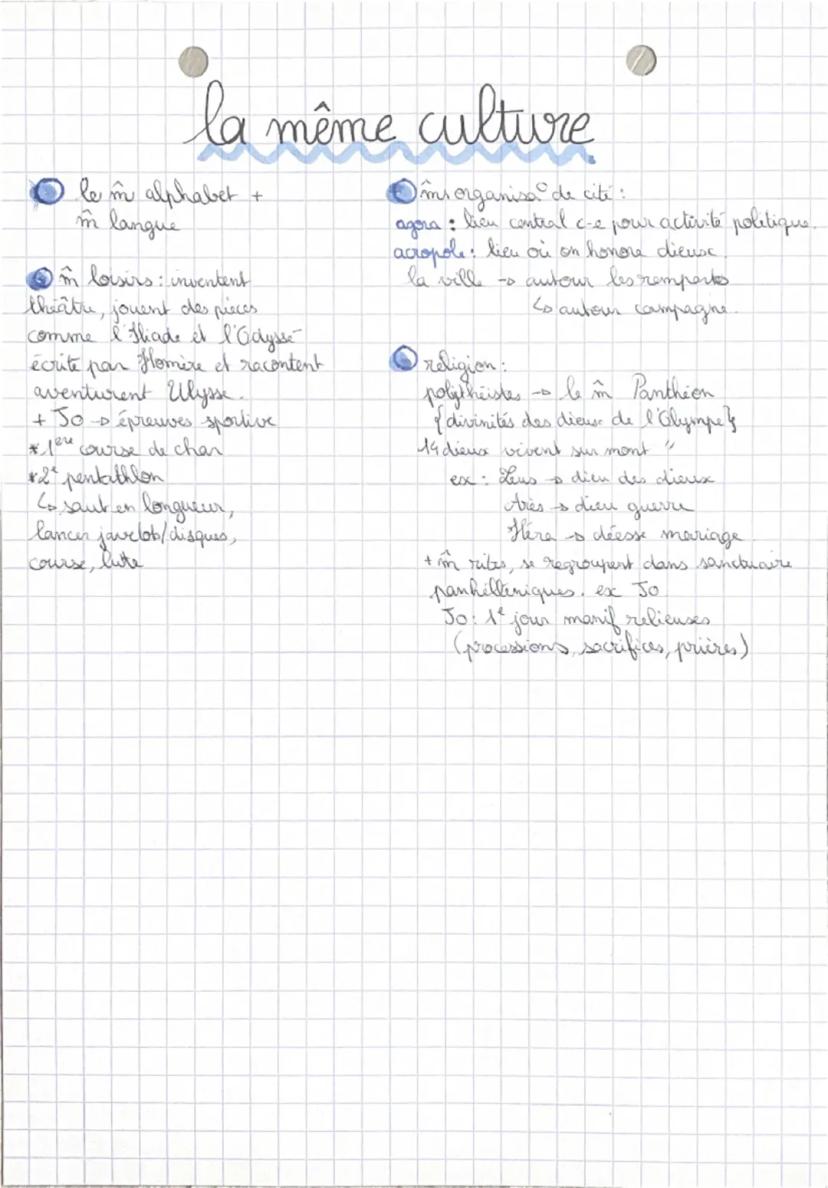 la même culture
le m̂ alphabet +
m̂ langue
m̂ loisirs : inventent
théâtre, jouent des pièces
comme l'Iliade et l'Odyssé
écrite par Homère et racontent
aventurent Ulysse.
+ Jo → épreuves sportive
* 1ère course de char
* 2e pentathlon
↳ saut en longueur,
lancer javelot/disques,
course, lute
m̂ organisa° de cité :
agora : lieu central c-e pour activité politique.
acropole : lieu où on honore dieux.
la ville → autour les remparts
↳ autour campagne.
religion :
polythéistes → le m̂ Panthéon
{divinités des dieux de l'Olympe}
14 dieux vivent sur mont "
ex : Zeus → dieu des dieux
Arès → dieu guerre
Héra → déesse mariage
+ m̂ rites, se regroupent dans sanctuaire
panhélleniques. ex Jo
Jo : 1e jour manif relieuses
(processions, sacrifices, prières)